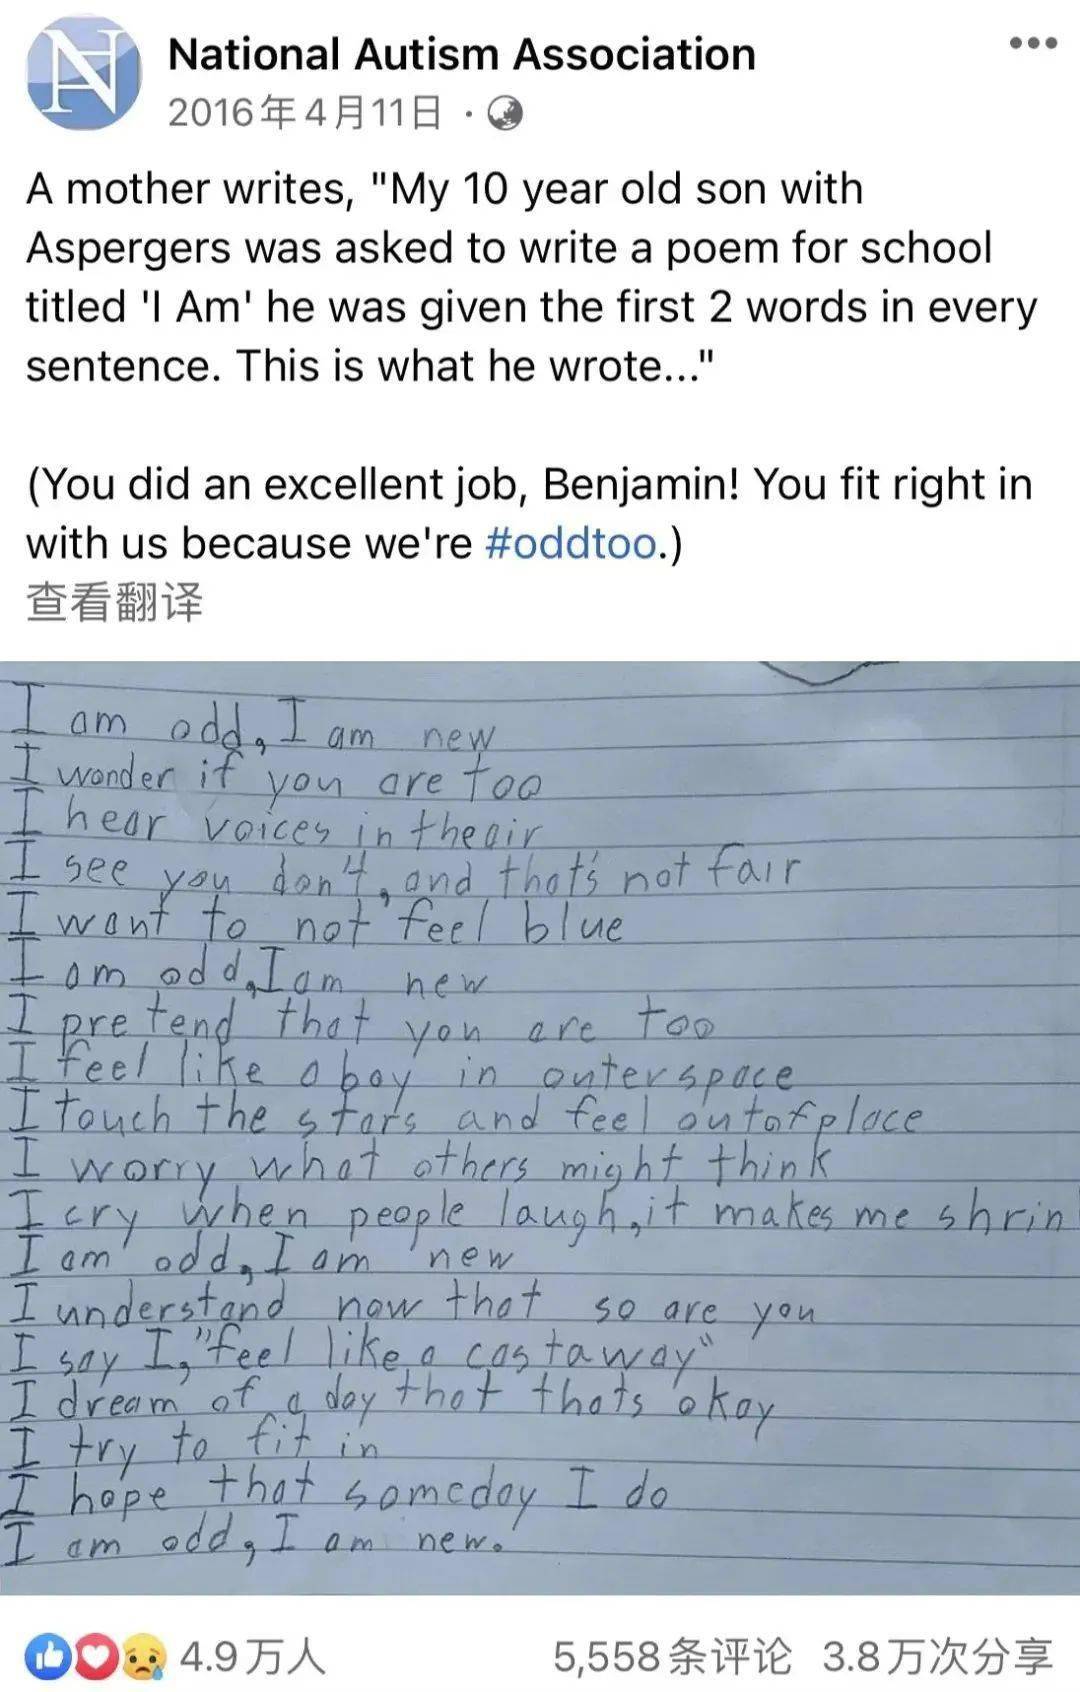 National Autism Association
2016年4月11日 ·
A mother writes, "My 10 year old son with
Aspergers was asked to write a poem for school
titled 'I Am' he was given the first 2 words in every
sentence. This is what he wrote..."
(You did an excellent job, Benjamin! You fit right in
with us because we're #oddtoo.)
查看翻译
I am odd, I am new
I wonder if you are too
I hear voices in the air
I see you don't, and that's not fair
I want to not feel blue
I am odd, I am new
I pretend that you are too
I feel like a boy in outerspace
I touch the stars and feel out of place
I worry what others might think
I cry when people laugh, it makes me shrin
I am odd, I am new
I understand now that so are you
I say I, "feel like a castaway"
I dream of a day that thats okay
I try to fit in
I hope that someday I do
I am odd, I am new.
4.9万人 5,558条评论 3.8万次分享